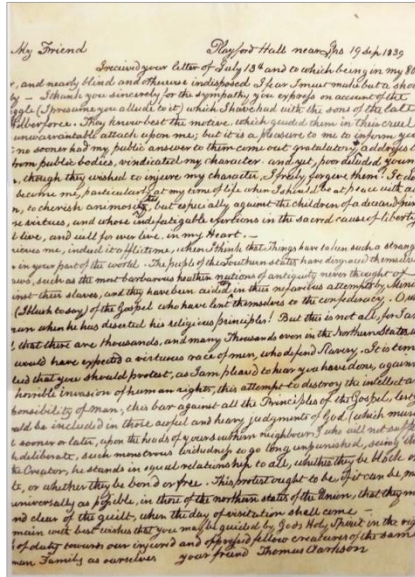 My Friend Playford Hall near Ips 19 Sep. 1839
I received your letter of July 13th and to which being in my 80
r, and nearly blind and otherwise indisposed I fear I must make but a sho
ly — I thank you sincerely for the sympathy you express on account of the
ggle (I presume you allude to it) which I have had with the sons of the late
Wilberforce. They know best the motive which guided them in their cruel
unwarrantable attack upon me; but it is a pleasure to me to inform yo
no sooner had my public answer to them come out gratulatory addresses
from public bodies, vindicated my character. and yet, poor deluded youn
, though they wished to injure my character, I freely forgive them. It do
become me, particularly at my time of life when I should be at peace with a
n, to cherish animosity, but especially against the children of a deceased frien
se virtues, and whose indefatigable exertions in the sacred cause of liberty
l live, and will for ever live, in my Heart. —
rieves me, indeed it afflicts me, when I think that Things have taken such a strang
n in your part of the world. The people of the Southern States have disgraced themselve
aws, such as the most barbarous heathen nations of antiquity never thought of
inst their slaves, and they have been aided in their nefarious attempts by Minis
(I blush to say) of the Gospel who have lent themselves to the confederacy.
man when he has deserted his religious principles! But this is not all, for I a
d, that there are thousands, and many Thousands even in the Northern States w
would have expected a virtuous race of men, who defend Slavery. It is tim
eed that you should protest, as I am pleased to hear you have done, against
horrible invasion of human rights, this attempt to destroy the intellect a
ponsibility of man, this bar against all the Principles of the Gospel, lest yo
uld be included in those awful and heavy judgments of God, which must
l sooner or later, upon the heads of your southern neighbours, who will not suff
h deliberate, such monstrous wickedness to go long unpunished, seeing th
the Creator, he stands in equal relationship to all, whether they be black or
te, or whether they be bond or free. This protest ought to be, if it can be, m
universally as possible, in those of the northern states of the Union, that they m
nd clear of the guilt, when the day of visitation shall come —
main with best wishes that you may be guided by Gods Holy Spirit in the rig
of duty towards our injured and oppressed fellow creatures of the sam
man Family as ourselves your friend Thomas Clarkson